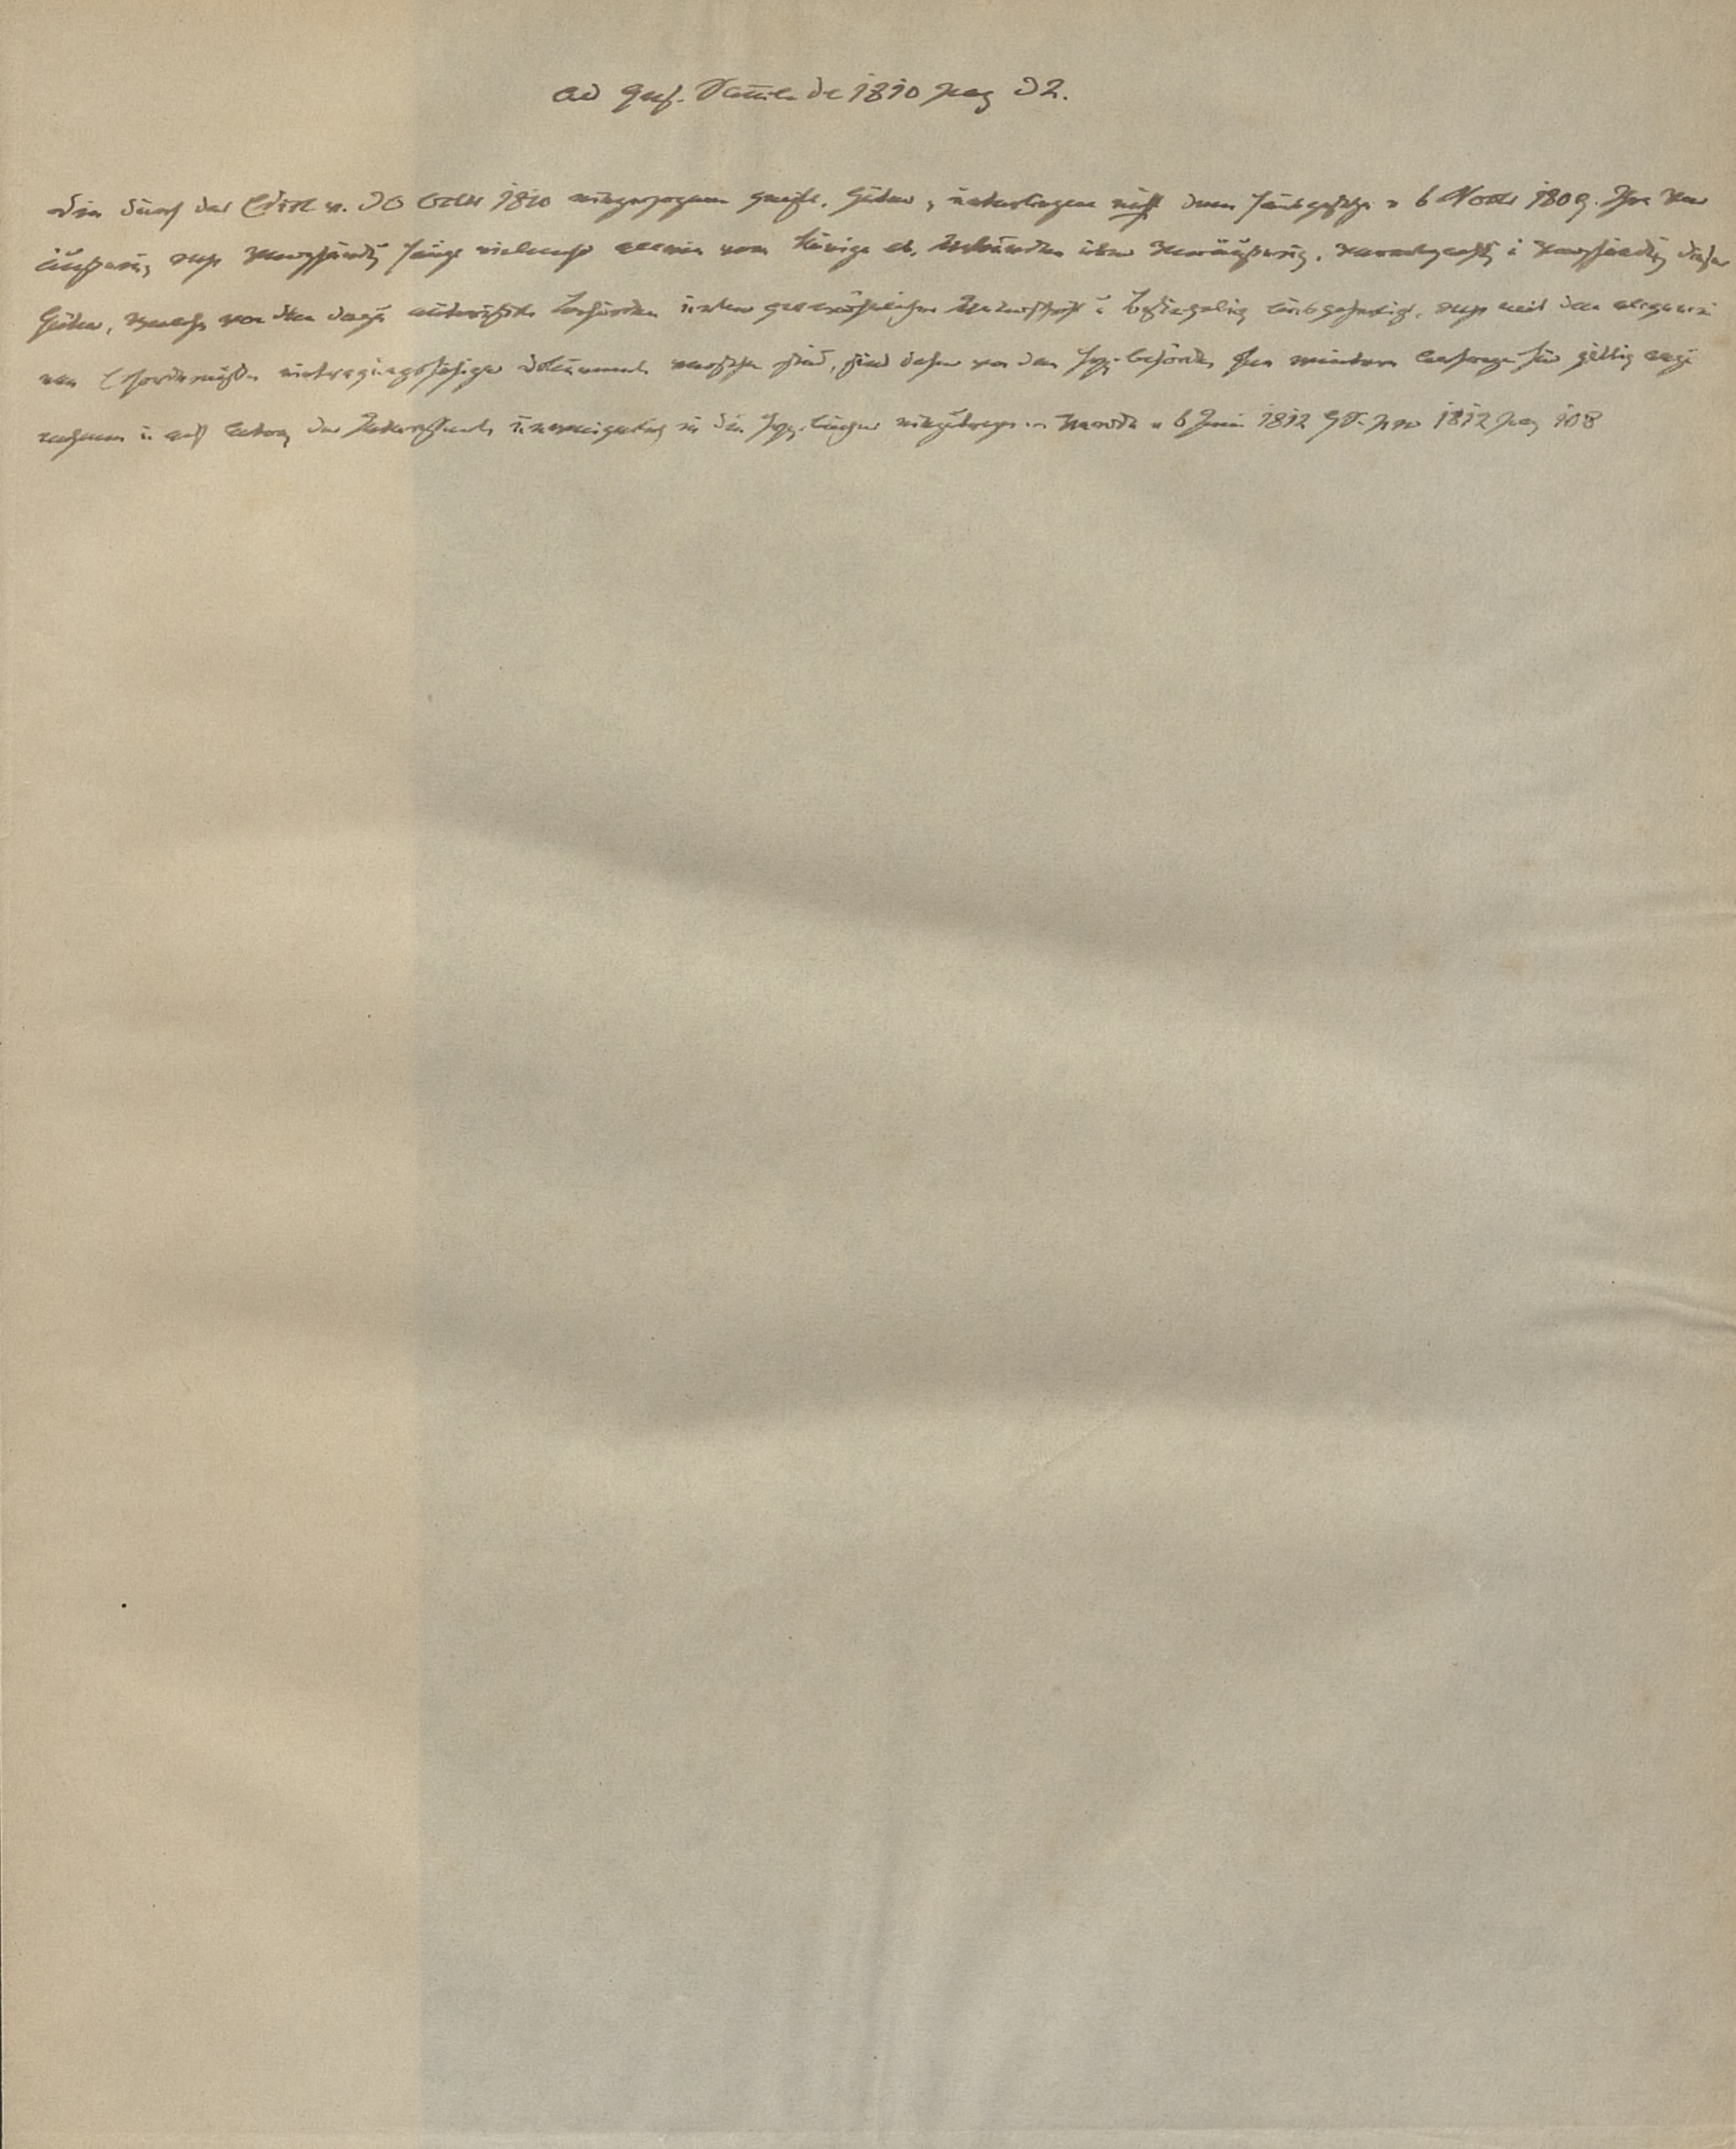 ad Ges. Samml. de 1810 pag 32.
Die durch das Edict v. 30 Octbr 1810 eingezogenen geistl. Güter, unterliegen nicht dem Hausgesetze v 6 Novbr 1809. Ihre Ver
äußerung resp Verpfändung hängt vielmehr allein vom Könige ab. Urkunden über Veräußerung, Vererbpachtg u Verpfändg dieser
Güter, welche von den dazu autorisirten Behörden unter gewöhnlicher Unterschrift u Besiegelung ausgefertigt, resp mit den allgemei
nen Erfordernißen eintragungsfähiger Documente versehen sind, sind daher von den Hyp. behörden für gültig anzu
nehmen u auf Antrag der Interessenten unweigerlich in die Hyp. bücher einzutragen. Verordn v 6 Juni 1812 GS. pro 1812 pag 108